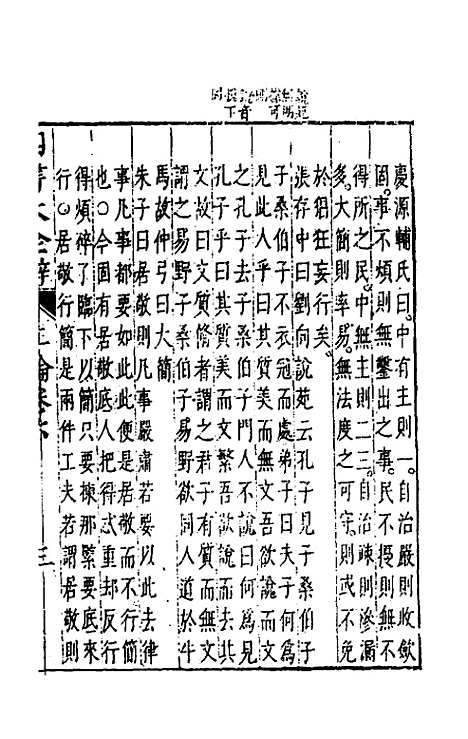 慶源輔氏曰中有主則一自治嚴則收斂
固事不煩則無鑿出之事民不擾則無不
得所之民中無主則二三自治疎則滲漏
多大簡則率易無法度之可守則或不免
於猖狂妄行矣
張存中曰劉向說苑云孔子見子桑伯子
子桑伯子不衣冠而處弟子曰夫子何為
見此人乎曰其質美而無文吾欲說而文
之孔子去子桑伯子門人不說曰何為見
孔子乎曰其質美而文繁吾欲說而去其
文故曰文質脩者謂之君子有質而無文
謂之易野子桑伯子易野欲同人道於牛
馬故仲弓曰大簡
朱子曰居敬則凡事嚴肅若要以此去律
事凡事都要如此此便是居敬而不行簡
也○今固有居敬底人把得忒重却反行
得煩碎了臨下以簡只要揀那緊要底來
行○居敬行簡是兩件工夫若謂居敬則
四書大全辯
上論卷六
三